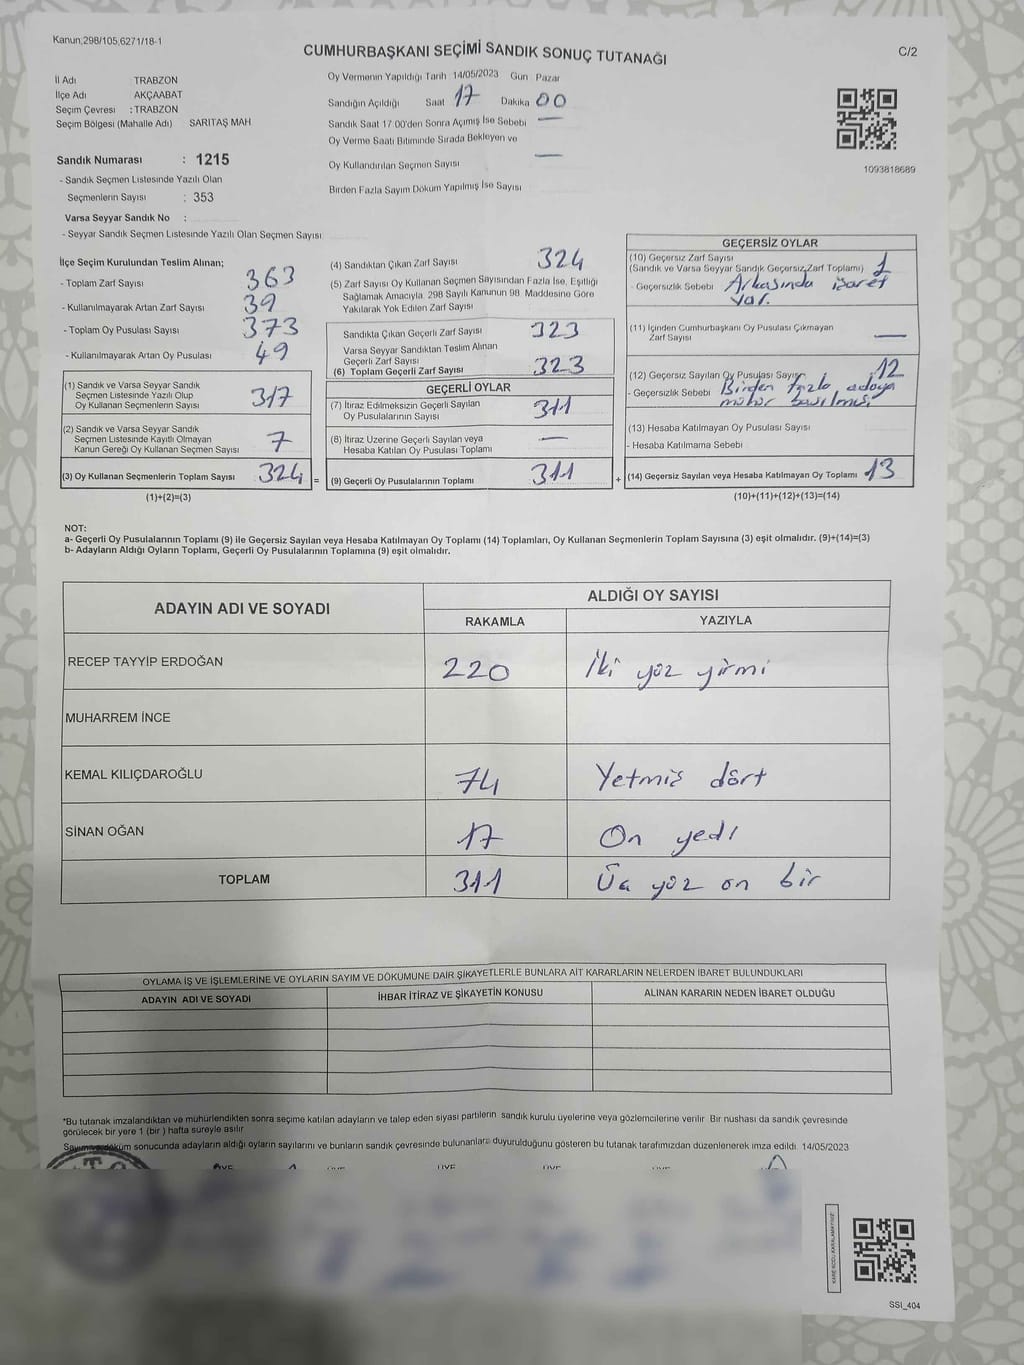 Kanun;298/105,6271/18-1
CUMHURBAŞKANI SEÇİMİ SANDIK SONUÇ TUTANAĞI
C/2
İl Adı TRABZON
İlçe Adı AKÇAABAT
Seçim Çevresi : TRABZON
Seçim Bölgesi (Mahalle Adı) SARITAŞ MAH
Sandık Numarası : 1215
- Sandık Seçmen Listesinde Yazılı Olan
Seçmenlerin Sayısı : 353
Varsa Seyyar Sandık No :
- Seyyar Sandık Seçmen Listesinde Yazılı Olan Seçmen Sayısı:
Oy Vermenin Yapıldığı Tarih 14/05/2023 Gün Pazar
Sandığın Açıldığı Saat 17 Dakika 00
Sandık Saat 17:00'den Sonra Açımış İse Sebebi —
Oy Verme Saati Bitiminde Sırada Bekleyen ve
Oy Kullandırılan Seçmen Sayısı —
Birden Fazla Sayım Döküm Yapılmış İse Sayısı
1093818689
İlçe Seçim Kurulundan Teslim Alınan;
- Toplam Zarf Sayısı 363
- Kullanılmayarak Artan Zarf Sayısı 39
- Toplam Oy Pusulası Sayısı 373
- Kullanılmayarak Artan Oy Pusulası 49
(1) Sandık ve Varsa Seyyar Sandık
Seçmen Listesinde Yazılı Olup
Oy Kullanan Seçmenlerin Sayısı 317
(2) Sandık ve Varsa Seyyar Sandık
Seçmen Listesinde Kayıtlı Olmayan
Kanun Gereği Oy Kullanan Seçmen Sayısı 7
(3) Oy Kullanan Seçmenlerin Toplam Sayısı 324 =
(1)+(2)=(3)
(4) Sandıktan Çıkan Zarf Sayısı 324
(5) Zarf Sayısı Oy Kullanan Seçmen Sayısından Fazla İse, Eşitliği
Sağlamak Amacıyla 298 Sayılı Kanunun 98. Maddesine Göre
Yakılarak Yok Edilen Zarf Sayısı
Sandıkta Çıkan Geçerli Zarf Sayısı 323
Varsa Seyyar Sandıktan Teslim Alınan
Geçerli Zarf Sayısı
(6) Toplam Geçerli Zarf Sayısı 323
GEÇERLİ OYLAR
(7) İtiraz Edilmeksizin Geçerli Sayılan
Oy Pusulalarının Sayısı 311
(8) İtiraz Üzerine Geçerli Sayılan veya
Hesaba Katılan Oy Pusulası Toplamı —
(9) Geçerli Oy Pusulalarının Toplamı 311 +
GEÇERSİZ OYLAR
(10) Geçersiz Zarf Sayısı
(Sandık ve Varsa Seyyar Sandık Geçersiz Zarf Toplamı) 1
- Geçersizlik Sebebi Arkasında işaret
var.
(11) İçinden Cumhurbaşkanı Oy Pusulası Çıkmayan
Zarf Sayısı —
(12) Geçersiz Sayılan Oy Pusulası Sayısı 12
- Geçersizlik Sebebi Birden fazla adaya
mühür basılmış
(13) Hesaba Katılmayan Oy Pusulası Sayısı
- Hesaba Katılmama Sebebi
(14) Geçersiz Sayılan veya Hesaba Katılmayan Oy Toplamı 13
(10)+(11)+(12)+(13)=(14)
NOT:
a- Geçerli Oy Pusulalarının Toplamı (9) ile Geçersiz Sayılan veya Hesaba Katılmayan Oy Toplamı (14) Toplamları, Oy Kullanan Seçmenlerin Toplam Sayısına (3) eşit olmalıdır. (9)+(14)=(3)
b- Adayların Aldığı Oyların Toplamı, Geçerli Oy Pusulalarının Toplamına (9) eşit olmalıdır.
ADAYIN ADI VE SOYADI
ALDIĞI OY SAYISI
RAKAMLA YAZIYLA
RECEP TAYYİP ERDOĞAN 220 İki yüz yirmi
MUHARREM İNCE
KEMAL KILIÇDAROĞLU 74 Yetmiş dört
SİNAN OĞAN 17 On yedi
TOPLAM 311 Üç yüz on bir
OYLAMA İŞ VE İŞLEMLERİNE VE OYLARIN SAYIM VE DÖKÜMÜNE DAİR ŞİKAYETLERLE BUNLARA AİT KARARLARIN NELERDEN İBARET BULUNDUKLARI
ADAYIN ADI VE SOYADI İHBAR İTİRAZ VE ŞİKAYETİN KONUSU ALINAN KARARIN NEDEN İBARET OLDUĞU
*Bu tutanak imzalandıktan ve mühürlendikten sonra seçime katılan adayların ve talep eden siyasi partilerin sandık kurulu üyelerine veya gözlemcilerine verilir. Bir nüshası da sandık çevresinde
görülecek bir yere 1 (bir) hafta süreyle asılır
Sayım ve döküm sonucunda adayların aldığı oyların sayılarını ve bunların sandık çevresinde bulunanlara duyurulduğunu gösteren bu tutanak tarafımızdan düzenlenerek imza edildi. 14/05/2023
ÜYE ÜYE ÜYE ÜYE ÜYE
SSI_404